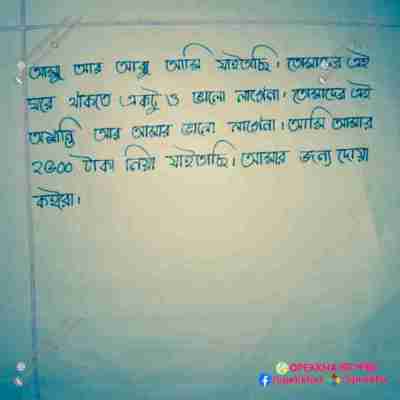 আম্মু আর আব্বু আমি যাইতাছি। তোমাদের এই
ঘরে থাকতে একটু ও ভালো লাগেনা। তোমাদের এই
অশান্তি আর আমার ভালো লাগেনা। আমি আমার
২৫০০ টাকা নিয়া যাইতাছি। আমার জন্য দোয়া
কইরা।